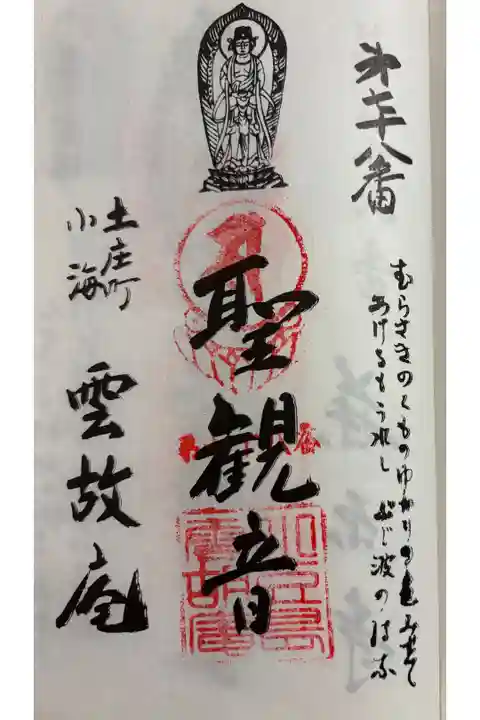 第七十八番
むらさきのくものゆかりの色みせて
あけるもうれし ふじ波のはな
聖観音
土庄町
小海
雲故庵
小豆島